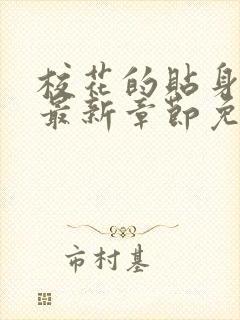 校花的贴身
最新章节免
市村基